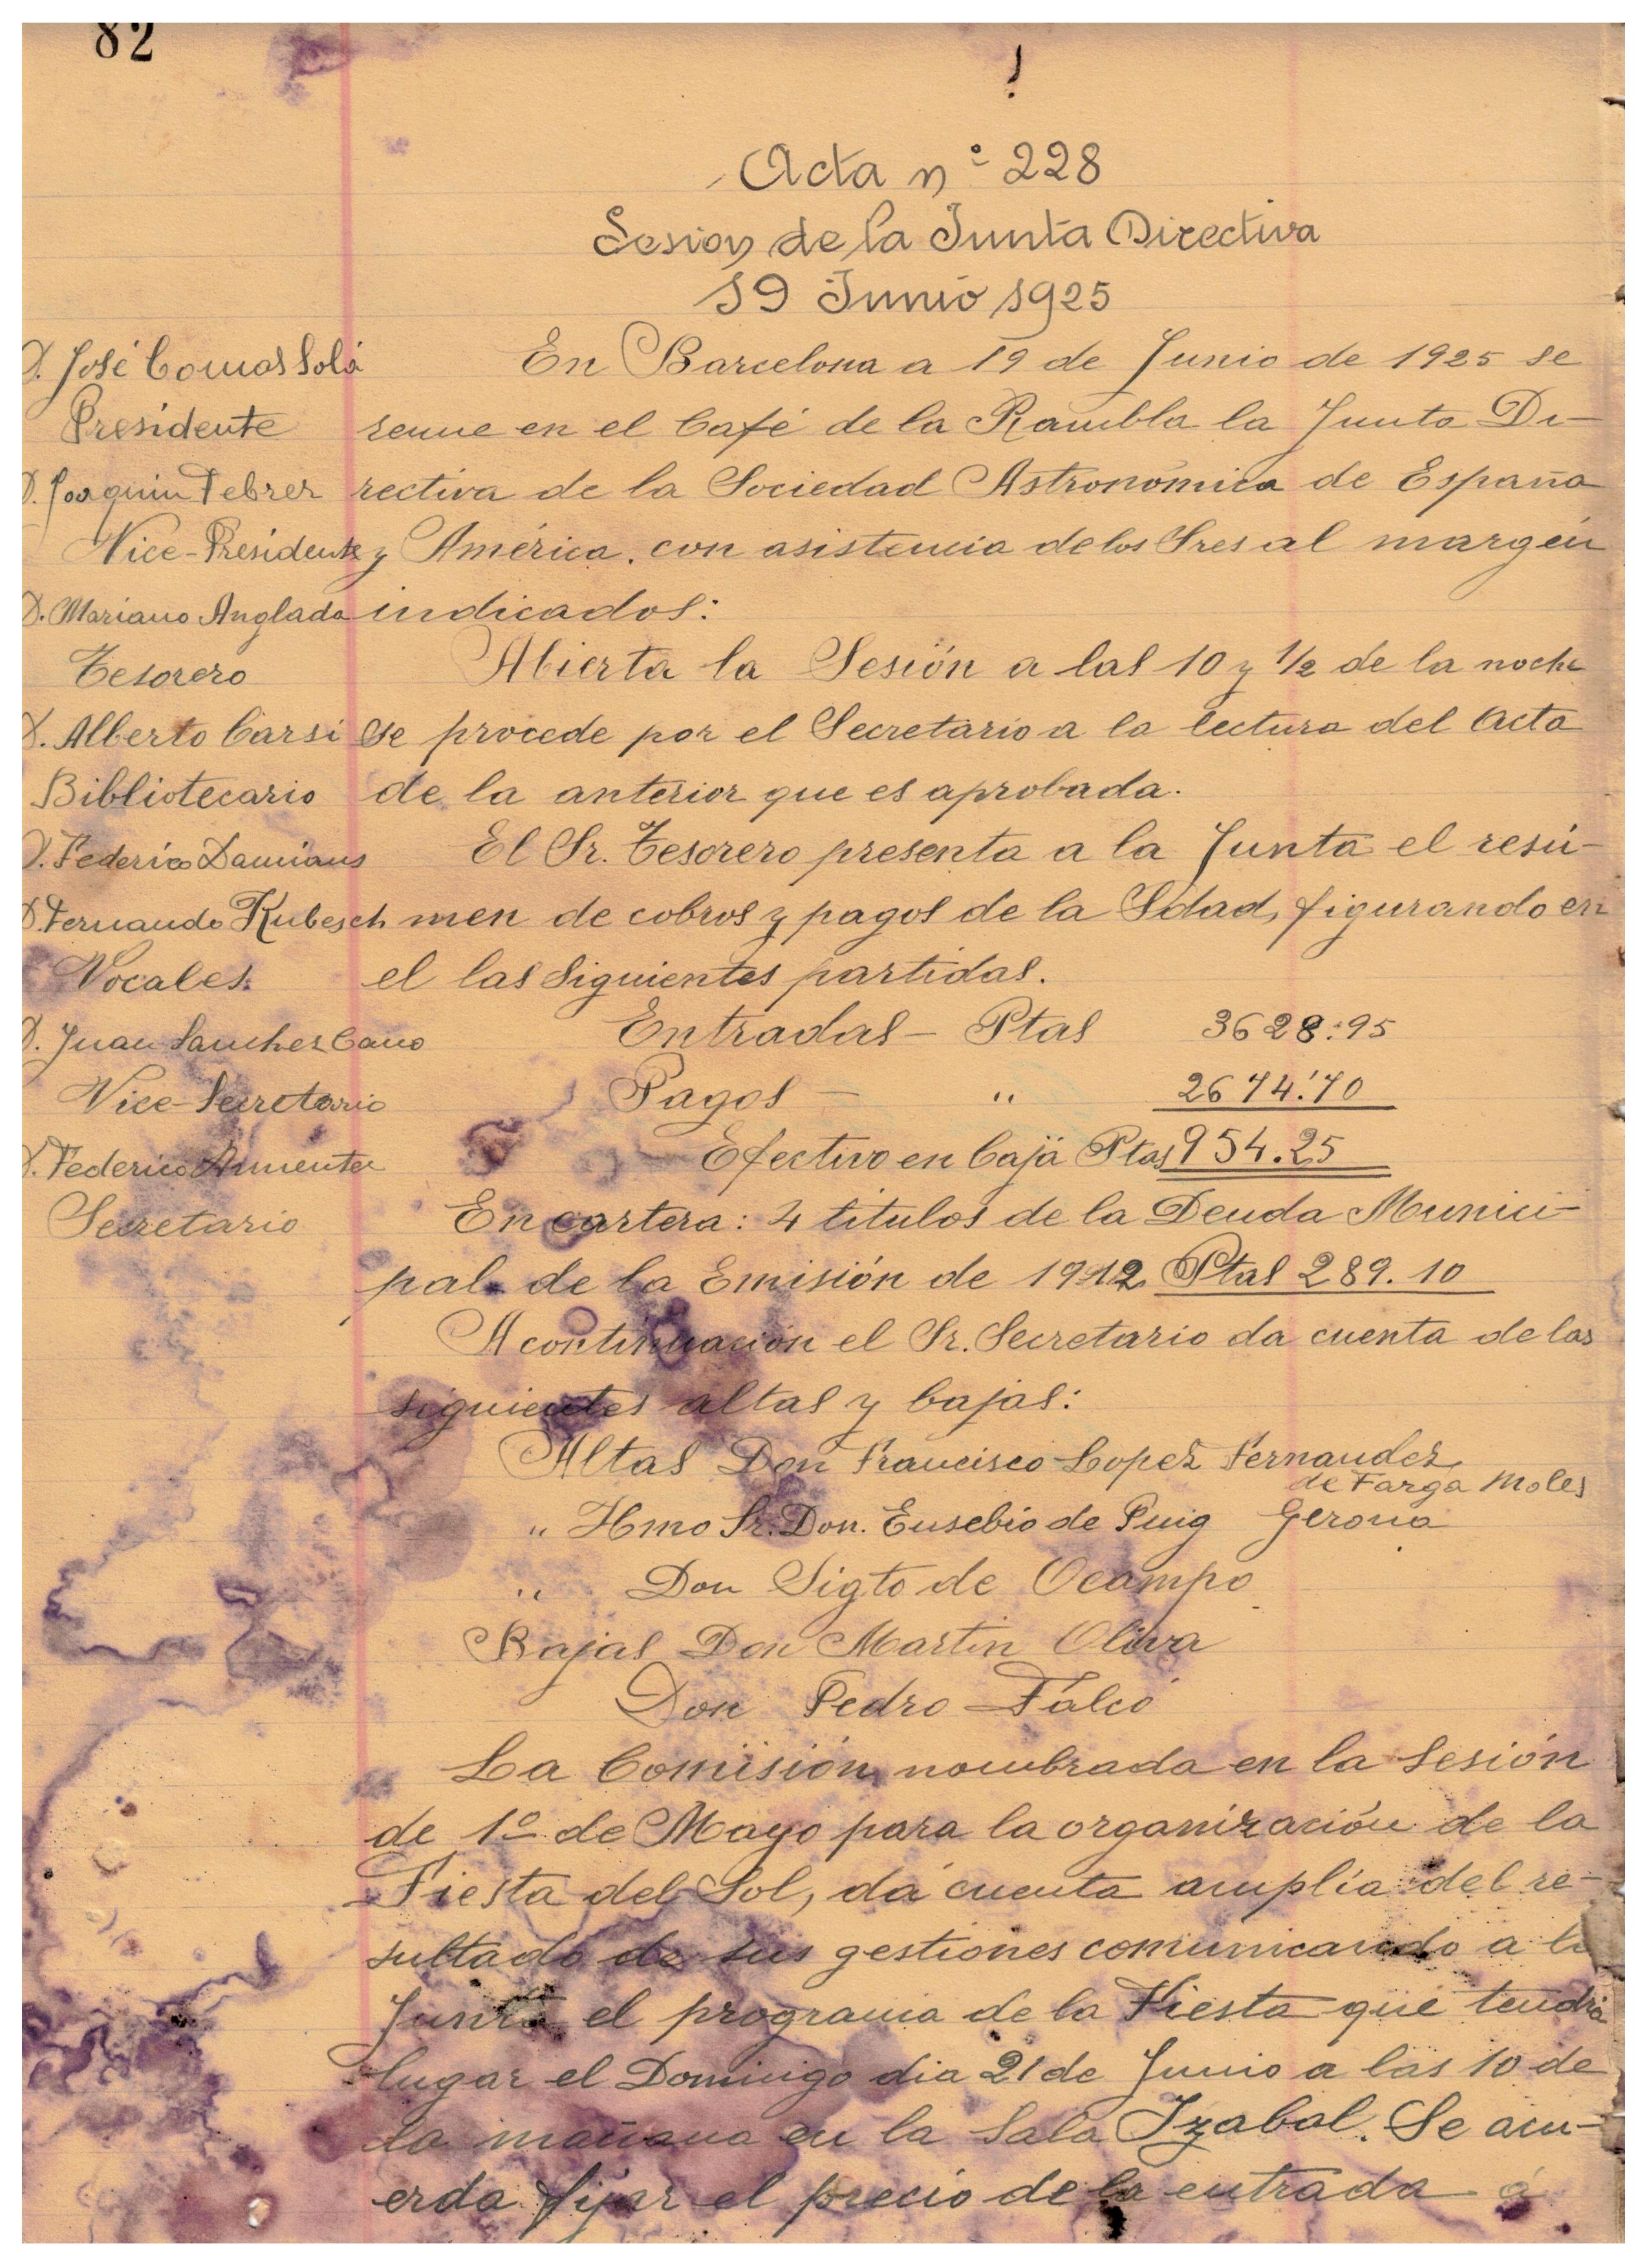 82
Acta nº 228
Sesion de la Junta Directiva
19 Junio 1925
D. José Comas Solá
Presidente
D. Joaquin Febrer
Vice-Presidente
D. Mariano Anglada
Tesorero
D. Alberto Carsi
Bibliotecario
D. Federico Damians
D. Fernando Kubesch
Vocales.
D. Juan Sanchez Cano
Vice-Secretario
D. Federico Armenter
Secretario
En Barcelona a 19 de Junio de 1925 se
reune en el Café de la Rambla la Junta Di-
rectiva de la Sociedad Astronómica de España
y América. con asistencia de los Sres al margén
indicados:
Abierta la Sesión a las 10 y 1/2 de la noche
se procede por el Secretario a la lectura del Acta
de la anterior que es aprobada.
El Sr. Tesorero presenta a la Junta el resú-
men de cobros y pagos de la Sdad, figurando en
el las siguientes partidas.
Entradas - Ptas 3628:95
Pagos - " 2674.'70
Efectivo en Caja Ptas 954.25
En cartera: 4 titulos de la Deuda Munici-
pal de la Emisión de 1912 Ptas 289.10
A continuación el Sr. Secretario da cuenta de las
siguientes altas y bajas:
Altas Don Francisco Lopez Fernandez
de Farga Moles
" Hmo Sr. Don. Eusebio de Puig Gerona
" Don Sigto de Ocampo
Bajas Don Martin Oliva
Don Pedro Falcó
La Comisión nombrada en la Sesión
de 1º de Mayo para la organización de la
Fiesta del Sol, dá cuenta amplía del re-
sultado de sus gestiones comunicando a la
Junta el programa de la Fiesta que tendrá
lugar el Domingo dia 21 de Junio a las 10 de
la mañana en la Sala Izabal. Se acu-
erda fijar el precio de la entrada á